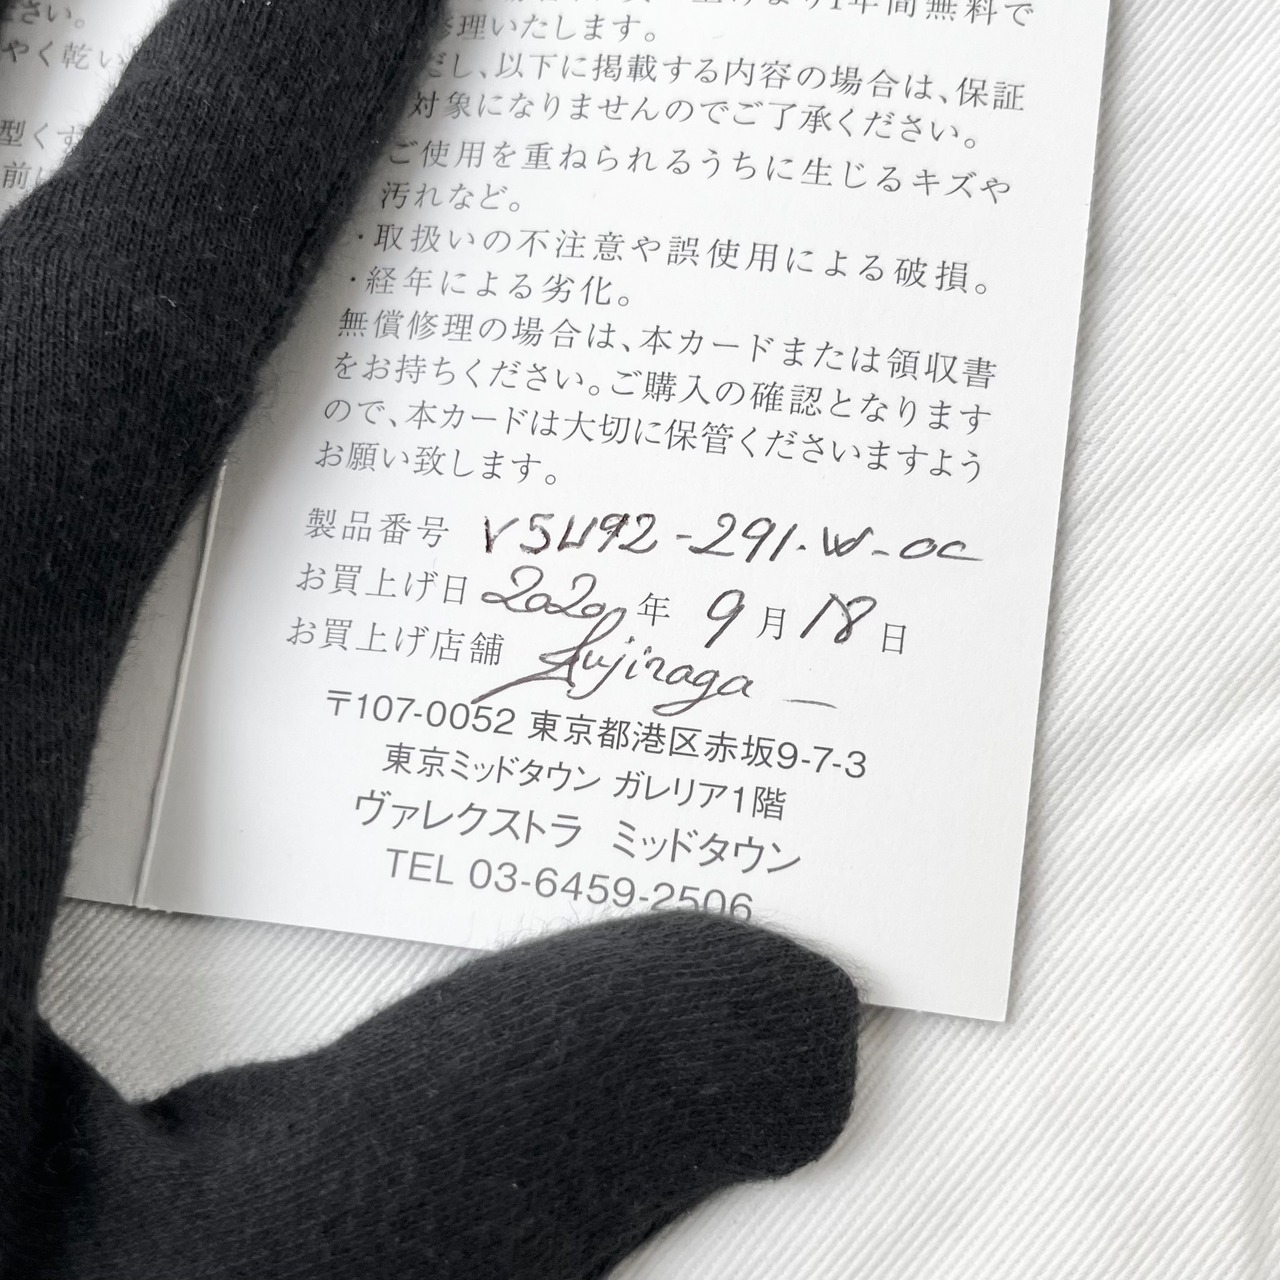 ださい。
やく乾い
型くず
前に
1年間無料で
修理いたします。
だし、以下に掲載する内容の場合は、保証
対象になりませんのでご了承ください。
ご使用を重ねられるうちに生じるキズや
汚れなど。
・取扱いの不注意や誤使用による破損。
・経年による劣化。
無償修理の場合は、本カードまたは領収書
をお持ちください。ご購入の確認となります
ので、本カードは大切に保管くださいますよう
お願い致します。
製品番号 V5L192-291.W-OC
お買上げ日 2020年 9月18日
お買上げ店舗
〒107-0052 東京都港区赤坂9-7-3
東京ミッドタウン ガレリア1階
ヴァレクストラ ミッドタウン
TEL 03-6459-2506